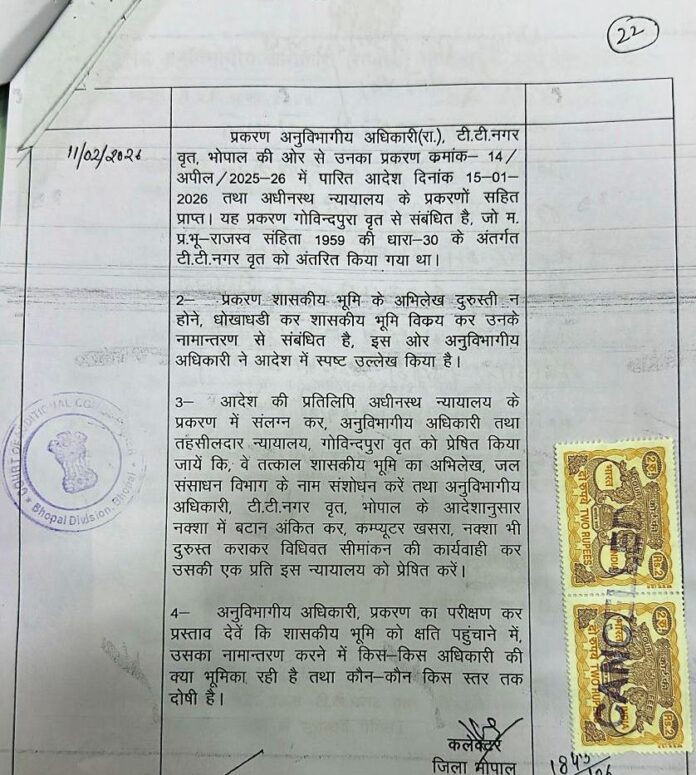 22
11/02/2026
प्रकरण अनुविभागीय अधिकारी(रा.), टी.टी.नगर
वृत, भोपाल की ओर से उनका प्रकरण क्रमांक– 14/
अपील/2025-26 में पारित आदेश दिनांक 15-01-
2026 तथा अधीनस्थ न्यायालय के प्रकरणों सहित
प्राप्त। यह प्रकरण गोविन्दपुरा वृत से संबंधित है, जो म.
प्र.भू–राजस्व संहिता 1959 की धारा–30 के अंतर्गत
टी.टी.नगर वृत को अंतरित किया गया था।
2– प्रकरण शासकीय भूमि के अभिलेख दुरुस्ती न
होने, धोखाधडी कर शासकीय भूमि विक्रय कर उनके
नामान्तरण से संबंधित है, इस ओर अनुविभागीय
अधिकारी ने आदेश में स्पष्ट उल्लेख किया है।
3– आदेश की प्रतिलिपि अधीनस्थ न्यायालय के
प्रकरण में संलग्न कर, अनुविभागीय अधिकारी तथा
तहसीलदार न्यायालय, गोविन्दपुरा वृत को प्रेषित किया
जायें कि, वे तत्काल शासकीय भूमि का अभिलेख, जल
संसाधन विभाग के नाम संशोधन करें तथा अनुविभागीय
अधिकारी, टी.टी.नगर वृत, भोपाल के आदेशानुसार
नक्शा में बटान अंकित कर, कम्प्यूटर खसरा, नक्शा भी
दुरुस्त कराकर विधिवत सीमांकन की कार्यवाही कर
उसकी एक प्रति इस न्यायालय को प्रेषित करें।
4– अनुविभागीय अधिकारी, प्रकरण का परीक्षण कर
प्रस्ताव देवें कि शासकीय भूमि को क्षति पहुंचाने में,
उसका नामान्तरण करने में किस–किस अधिकारी की
क्या भूमिका रही है तथा कौन–कौन किस स्तर तक
दोषी है।
कलेक्टर
जिला भोपाल
COURT OF ADDITIONAL
Bhopal Division, Bhopal
भारत INDIA
दो रुपये TWO RUPEES
Rs.2
भारत INDIA
दो रुपये TWO RUPEES
Rs.2
CANCELLED